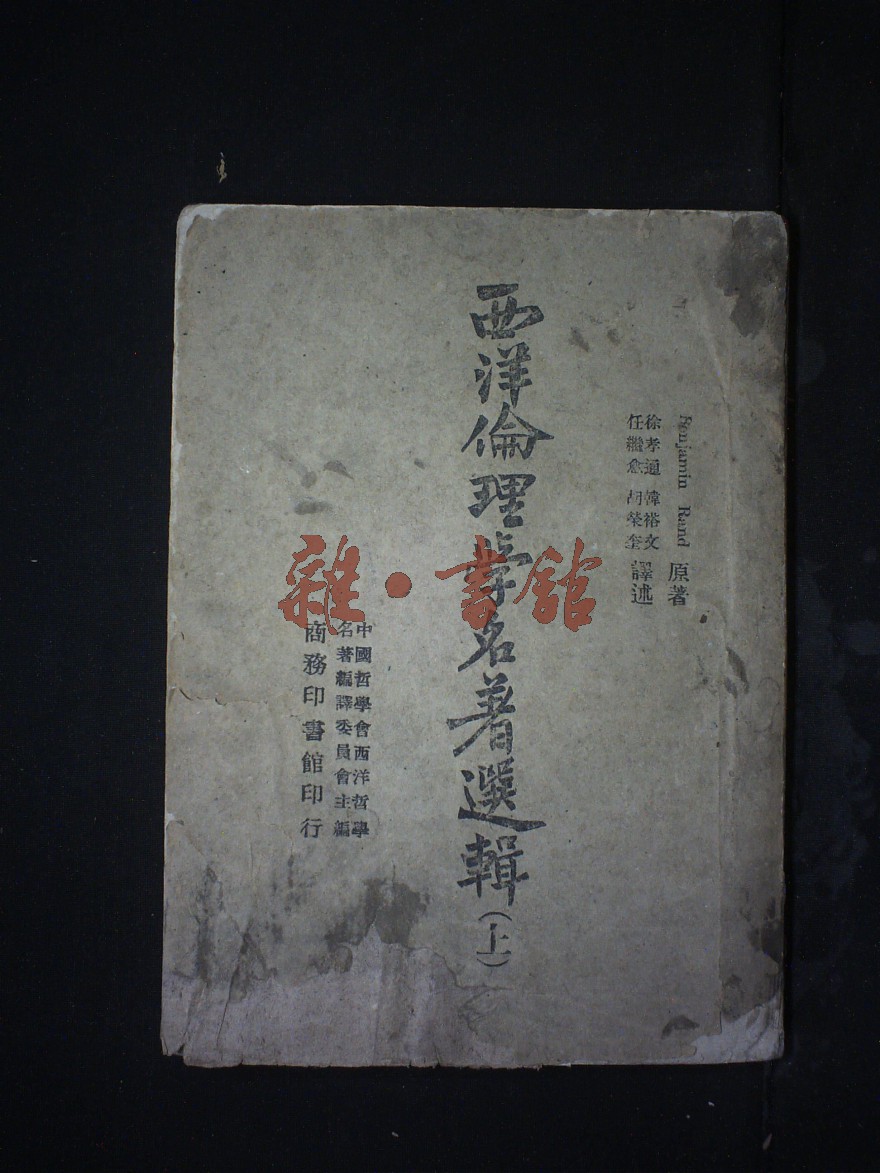 Benjamin Rand 原著
徐孝通 韓裕文
任繼愈 胡榮奎 譯述
西洋倫理學名著選輯(上)
中國哲學會西洋哲學
名著編譯委員會主編
商務印書館印行
雜·書館